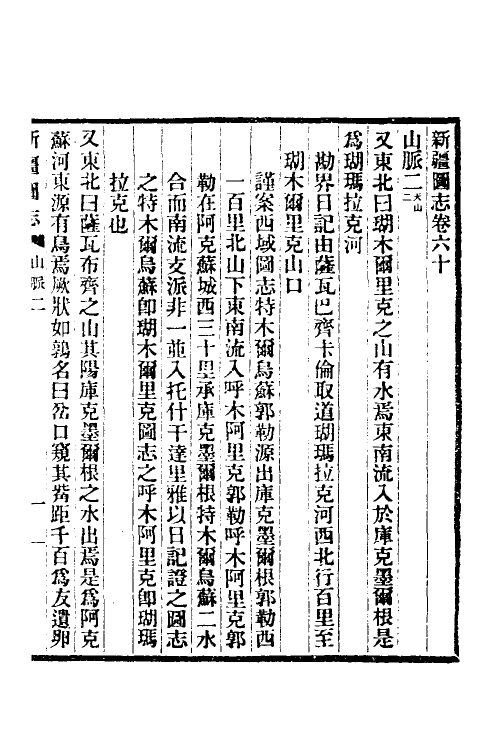 新疆圖志卷六十
山脈二天山二
又東北曰瑚木爾里克之山有水焉東南流入於庫克墨爾根是
爲瑚瑪拉克河
勘界日記由薩瓦巴齊卡倫取道瑚瑪拉克河西北行百里至
瑚木爾里克山口
謹案西域圖志特木爾烏蘇郭勒源出庫克墨爾根郭勒西
一百里北山下東南流入呼木阿里克郭勒呼木阿里克郭
勒在阿克蘇城西三十里承庫克墨爾根特木爾烏蘇二水
合而南流支派非一並入托什干達里雅以日記證之圖志
之特木爾烏蘇卽瑚木爾里克圖志之呼木阿里克卽瑚瑪
拉克也
又東北曰薩瓦布齊之山其陽庫克墨爾根之水出焉是爲阿克
蘇河東源有鳥焉厥狀如鶉名曰岔口窺其觜距千百爲友遺卵
新疆圖志 山脈二 一